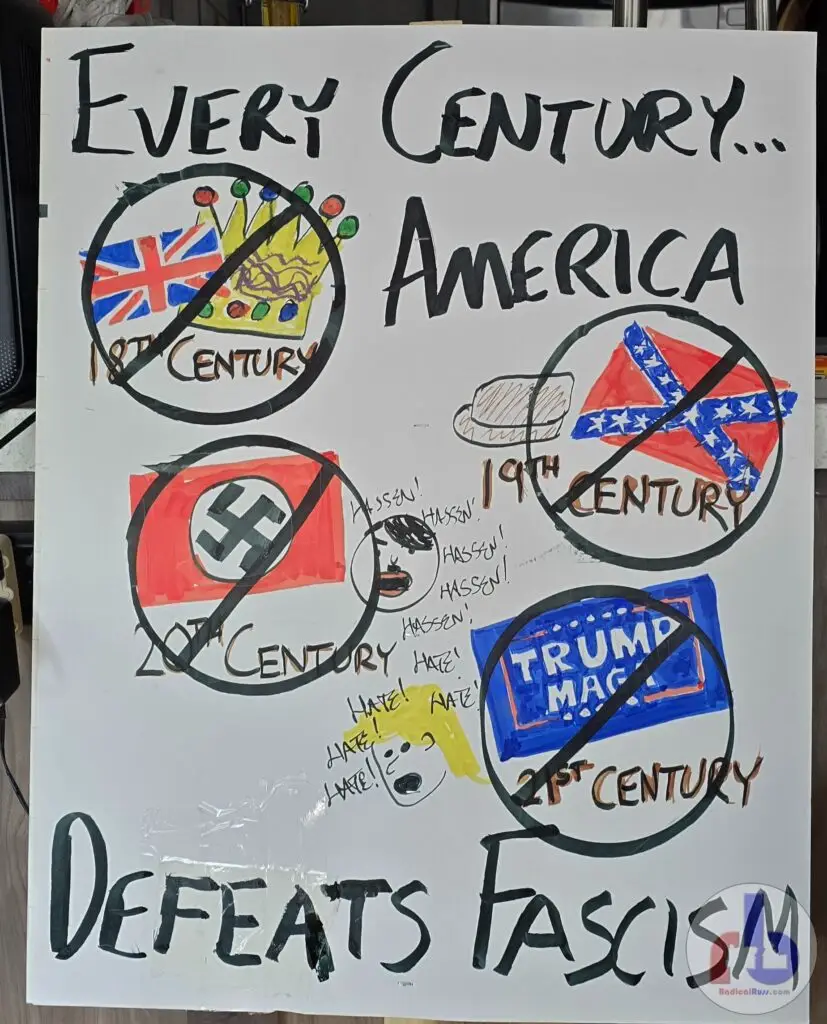 EVERY CENTURY...
AMERICA
18TH CENTURY
19TH CENTURY
HASSEN!
HASSEN!
HASSEN!
HASSEN!
HASSEN!
20TH CENTURY
HATE!
HATE!
HATE!
HATE!
HATE!
TRUMP
MAGA
21ST CENTURY
DEFEATS FASCISM
rb
RadicalRuss.com